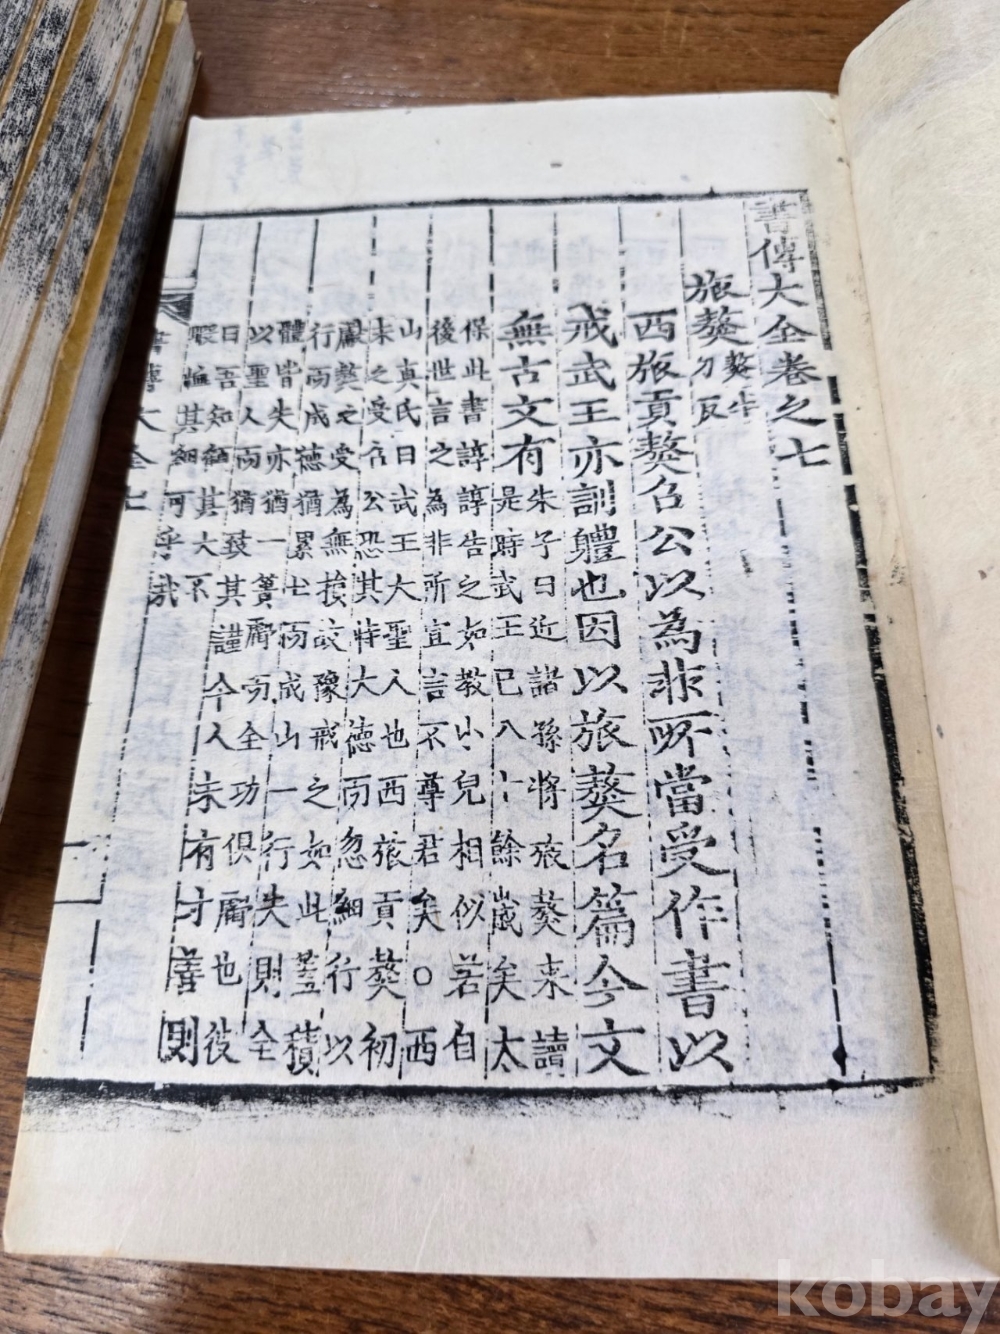 書傳大全卷之七
旅獒
獒牛
刀反
西旅貢獒召公以為非所當受作書以
戒武王亦訓體也因以旅獒名篇今文
無古文有
朱子曰近諸孫將旅獒来讀
是時武王已八十餘歲矣太
保此書諄諄告之如教小兒相似若自
後世言之為非所宜言不尊君矣○西
山真氏曰武王大聖人也西旅貢獒初
未之受召公恐其恃大德而忽細行以
獒之受為無損故豫戒之如此蓋積
行而成德猶累土而成山一行失則全
體皆失亦猶一簣虧而全功俱虧也彼
以聖人而猶致其謹今人未有才善則
曰吾知其大不
暇恤其細可乎哉
書傳大全七
一
kobay